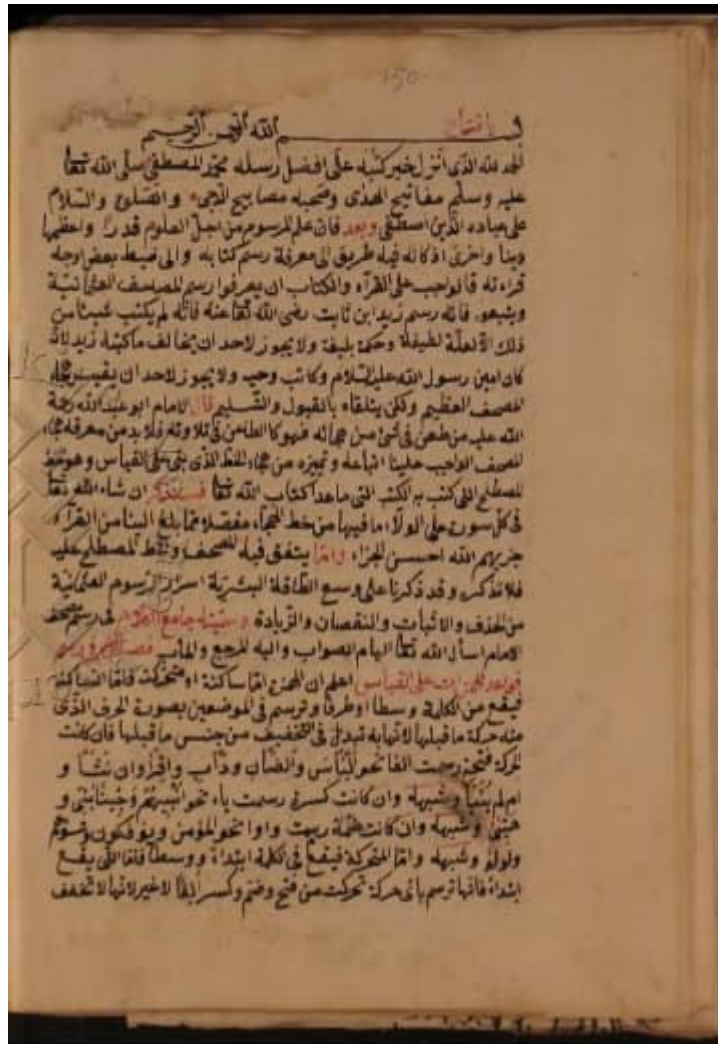 150
بسم الله الرحمن الرحيم
الحمد لله الذى انزل خير كتبه على افضل رسله محمد المصطفى صلى الله تعا
عليه وسلم مفاتيح الهدى وصحبه مصابيح الدجى والصلوة والسلام
على عباده الذين اصطفى وبعد فان علم المرسوم من اجل العلوم قدرا واعظمها
دينا واخرى اذ كانه فيه طريق الى معرفة رسم كتابه والى ضبط بعض اوجه
قراءته فالواجب على القراء والكتاب ان يعرفوا رسم المصاحف العثمانية
ويتبعو فانه رسم زيد ابن ثابت رضى الله تعا عنه فانه لم يكتب شيئا من
ذلك الا لعلة لطيفة وحكمة بليغة ولا يجوز لاحد ان يخالف ما كتبه زيد لانه
كان امين رسول الله عليه السلام وكاتب وحيه ولا يجوز لاحد ان
المصحف العظيم ولكن يتلقاه بالقبول والتسليم قال الامام ابو عبد الله رحمة
الله عليه من طعن فى شئ من هجائه فهو كالطاعن فى تلاوته فلا بد من معرفة هجاء
المصحف الواجب علينا اتباعه وتميزه من هجاء الخط الذى بنى على القياس وهو خط
المصطلح التى كتب به الكتب التى ما عدا كتاب الله تعا فسنذكر ان شاء الله تعا
فى كل سورة على الولاء ما فيها من خط الهجاء مفصلا مما بلغ الينا من القراء
جزيهم الله احسن الجزاء واما يتفق فيه المصحف وخط المصطلح عليه
فلا نذكره وقد ذكرنا على وسع الطاقة البشرية اسرار الرسوم العثمانية
من الحذف والاثبات والنقصان والزيادة وسميته جامع فى رسم مصحف
الامام اسأل الله تعا الهام الصواب واليه المرجع والمآب
قواعد الهمزات على القياس اعلم ان الهمزة اما ساكنة او متحركة فاما الساكنة
فيقع من الكلمة وسطا او طرفا وترسم فى الموضعين بصورة الحرف الذى
منه حركة ما قبلها لانها به تبدل فى التخفيف من جنس ما قبلها فان كانت
الحركة فتحة رسمت الفا نحو البأس والضأن ودأب واقرأ وان نشأ و
ام لم ينبأ وشبهه وان كانت كسرة رسمت ياء نحو انبئهم وجئنا ونبئ و
هيئ وشبهه وان كانت ضمة رسمت واوا نحو المؤمن ويؤفكون وتسؤهم
ولؤلؤ وشبهه واما المتحركة فيقع فى الكلمة ابتداء ووسطا فاما التى يقع
ابتداء فانها ترسم باى حركة تحركت من فتح وضم وكسر الفا لا غير لانها لا تخفف